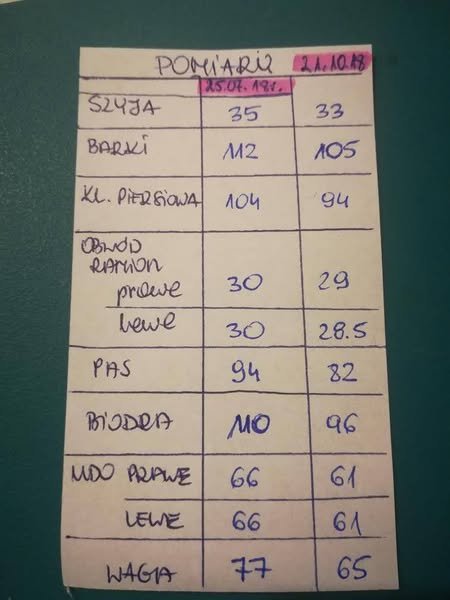 POMIARY 21.10.18
25.07.18r.
SZYJA 35 33
BARKI 112 105
KL. PIERSIOWA 104 94
OBWÓD
RAMION
prawe 30 29
lewe 30 28.5
PAS 94 82
BIODRA 110 96
UDO PRAWE 66 61
LEWE 66 61
WAGA 77 65